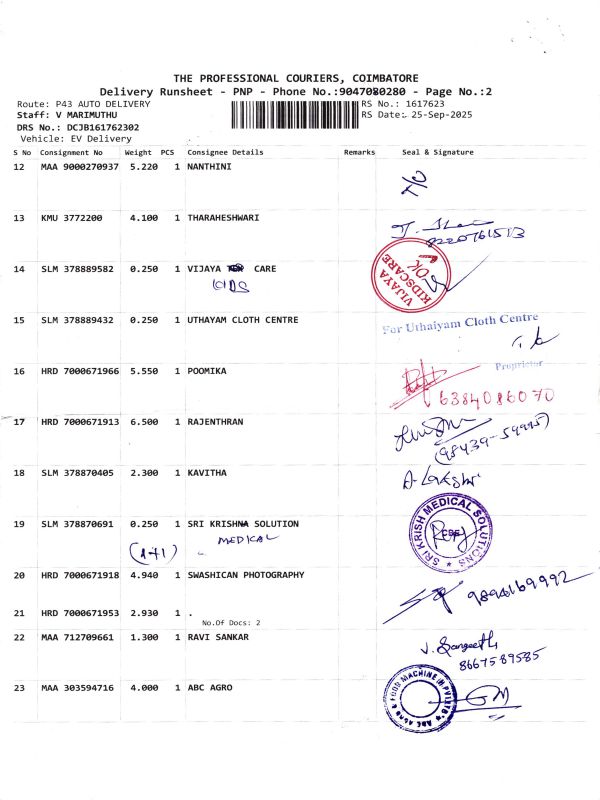 THE PROFESSIONAL COURIERS, COIMBATORE
Delivery Runsheet - PNP - Phone No.:9047080280 - Page No.:2
Route: P43 AUTO DELIVERY RS No.: 1617623
Staff: V MARIMUTHU RS Date: 25-Sep-2025
DRS No.: DCJB161762302
Vehicle: EV Delivery
S No Consignment No Weight PCS Consignee Details Remarks Seal & Signature
12 MAA 9000270937 5.220 1 NANTHINI
13 KMU 3772200 4.100 1 THARAHESHWARI
8220761513
14 SLM 378889582 0.250 1 VIJAYA CARE
KIDS
VIJAYA KIDSCARE
OK
15 SLM 378889432 0.250 1 UTHAYAM CLOTH CENTRE
For Uthaiyam Cloth Centre
Proprietor
16 HRD 7000671966 5.550 1 POOMIKA
6384086070
17 HRD 7000671913 6.500 1 RAJENTHRAN
(98439-59995)
18 SLM 378870405 2.300 1 KAVITHA
19 SLM 378870691 0.250 1 SRI KRISHNA SOLUTION
(1+1) MEDICAL
SRI KRISH MEDICAL SOLUTIONS
CBE
20 HRD 7000671918 4.940 1 SWASHICAN PHOTOGRAPHY
9894169992
21 HRD 7000671953 2.930 1 .
No.Of Docs: 2
22 MAA 712709661 1.300 1 RAVI SANKAR
V. Sangeetha
8667589585
23 MAA 303594716 4.000 1 ABC AGRO
ABC AGRO & FOOD MACHINE